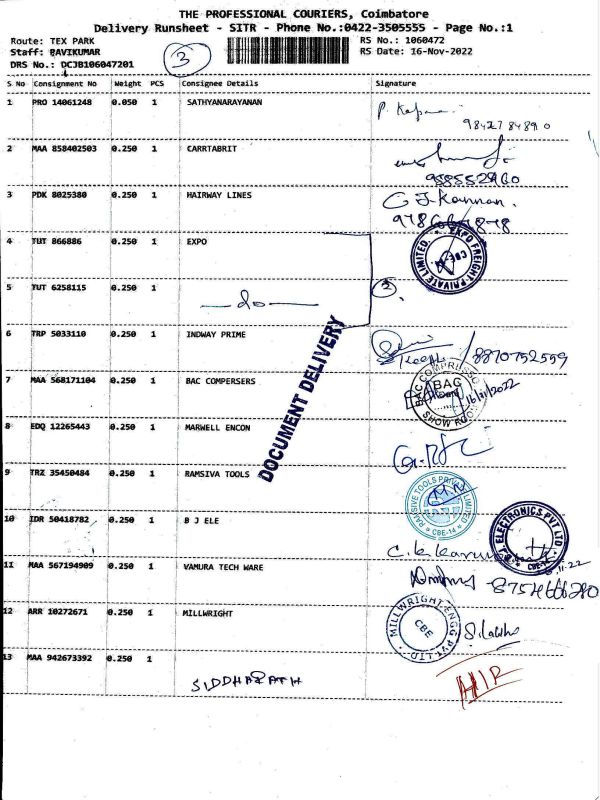 THE PROFESSIONAL COURIERS, Coimbatore
Delivery Runsheet - SITR - Phone No.:0422-3505555 - Page No.:1
Route: TEX PARK
RS No.: 1060472
Staff: RAVIKUMAR
3
RS Date: 16-Nov-2022
DRS No.: DCJB106047201
S No Consignment No Weight PCS Consignee Details Signature
1 PRO 14061248 0.050 1 SATHYANARAYANAN
9842784890
2 MAA 858402503 0.250 1 CARRTABRIT
988552960
3 PDK 8025380 0.250 1 HAIRWAY LINES
G J. Kannan.
4 TUT 866886 0.250 1 EXPO
EXPO FREIGHT PRIVATE LIMITED.
5 TUT 6258115 0.250 1 —do—
2
6 TRP 5033110 0.250 1 INDWAY PRIME
/8870752559
DOCUMENT DELIVERY
7 MAA 568171104 0.250 1 BAC COMPERSERS
BAC COMPRESSO
BAC
SHOW ROOM
16/11/2022
8 EDQ 12265443 0.250 1 MARWELL ENCON
9 TRZ 35450484 0.250 1 RAMSIVA TOOLS
RAMSIVE TOOLS PRIVATE LIMITED
CBE-14
10 IDR 50418782 0.250 1 B J ELE
ELECTRONICS PVT LTD
CBE-14
11 MAA 567194909 0.250 1 VAMURA TECH WARE
12 ARR 10272671 0.250 1 MILLWRIGHT
MILLWRIGHT ENGG PVT LTD
CBE
13 MAA 942673392 0.250 1
SIDDHARATH